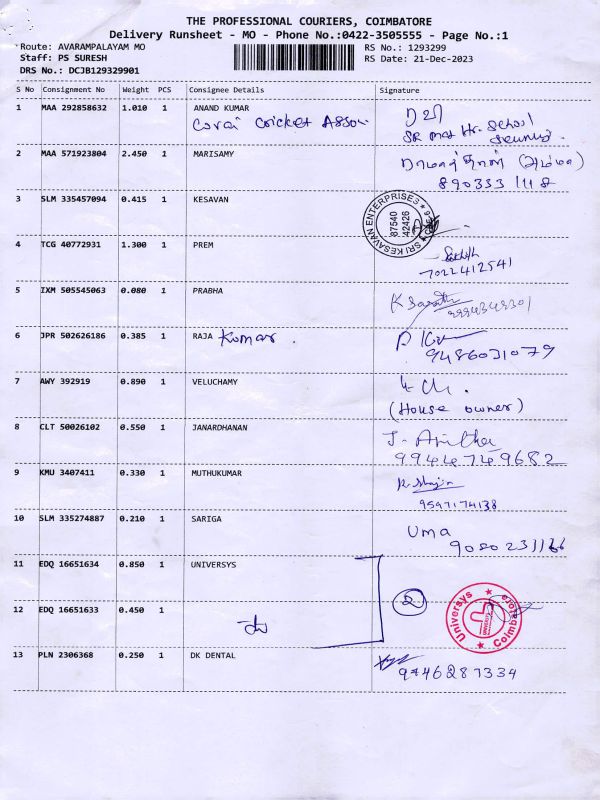 THE PROFESSIONAL COURIERS, COIMBATORE
Delivery Runsheet - MO - Phone No.:0422-3505555 - Page No.:1
Route: AVARAMPALAYAM MO
RS No.: 1293299
Staff: PS SURESH
RS Date: 21-Dec-2023
DRS No.: DCJB129329901
S No Consignment No Weight PCS Consignee Details Signature
1 MAA 292858632 1.010 1 ANAND KUMAR
ரவி
Covai Cricket Asson
SR mat Hr. School
2 MAA 571923804 2.450 1 MARISAMY
(அம்மா)
890333 1118
3 SLM 335457094 0.415 1 KESAVAN
SRI KESAVAN ENTERPRISES
87540
42426
CBE-6
4 TCG 40772931 1.300 1 PREM
7022412541
5 IXM 505545063 0.080 1 PRABHA
K Sarathi
6 JPR 502626186 0.385 1 RAJA Kumar.
9486031079
7 AWY 392919 0.890 1 VELUCHAMY
(House owner)
8 CLT 50026102 0.550 1 JANARDHANAN
J. Anitha
9944749682
9 KMU 3407411 0.330 1 MUTHUKUMAR
9597174138
10 SLM 335274887 0.210 1 SARIGA
Uma
11 EDQ 16651634 0.850 1 UNIVERSYS
2
Universys
Coimbatore
12 EDQ 16651633 0.450 1
13 PLN 2306368 0.250 1 DK DENTAL
9746287334